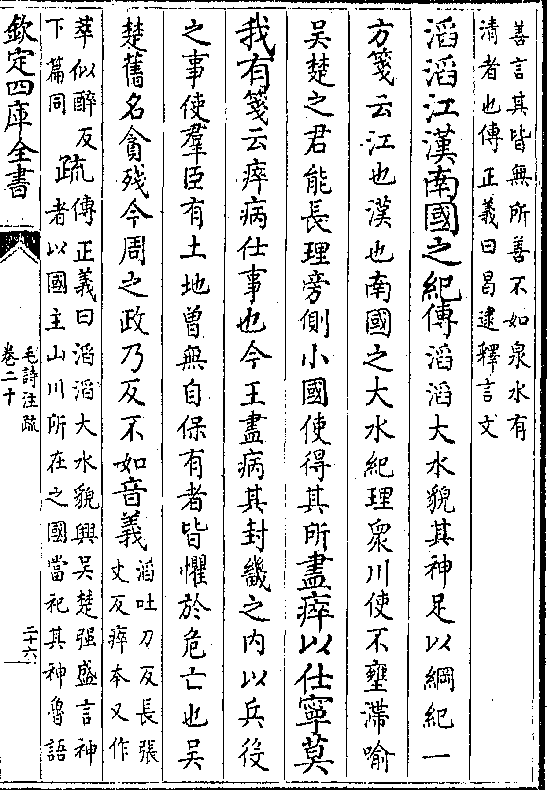 善言其皆無所善不如泉水有
清者也傳正義曰曷逮釋言文
滔滔江漢南國之紀傳滔滔大水貌其神足以綱紀一
方箋云江也漢也南國之大水紀理衆川使不壅滯喻
吳楚之君能長理旁側小國使得其所盡瘁以仕寧莫
我有箋云瘁病仕事也今王盡病其封畿之内以兵役
之事使羣臣有土地曾無自保有者皆懼於危亡也吳
楚舊名貪殘今周之政乃反不如音義滔吐刀反長張
丈反瘁本又作
萃似醉反
下篇同
疏傳正義曰滔滔大水貌興吳楚强盛言神
者以國主山川所在之國當祀其神魯語
欽定四庫全書
毛詩注疏
卷二十
二十六